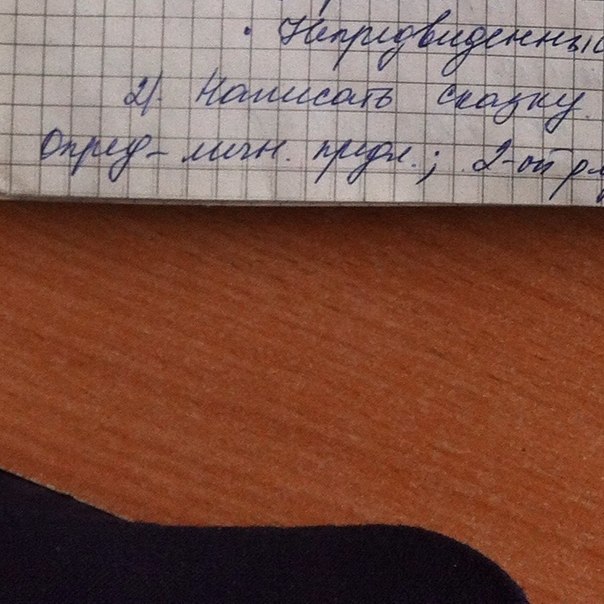 • Непредвиденный
2). Написать сказку.
Опред-личн. предл.; 2-ой